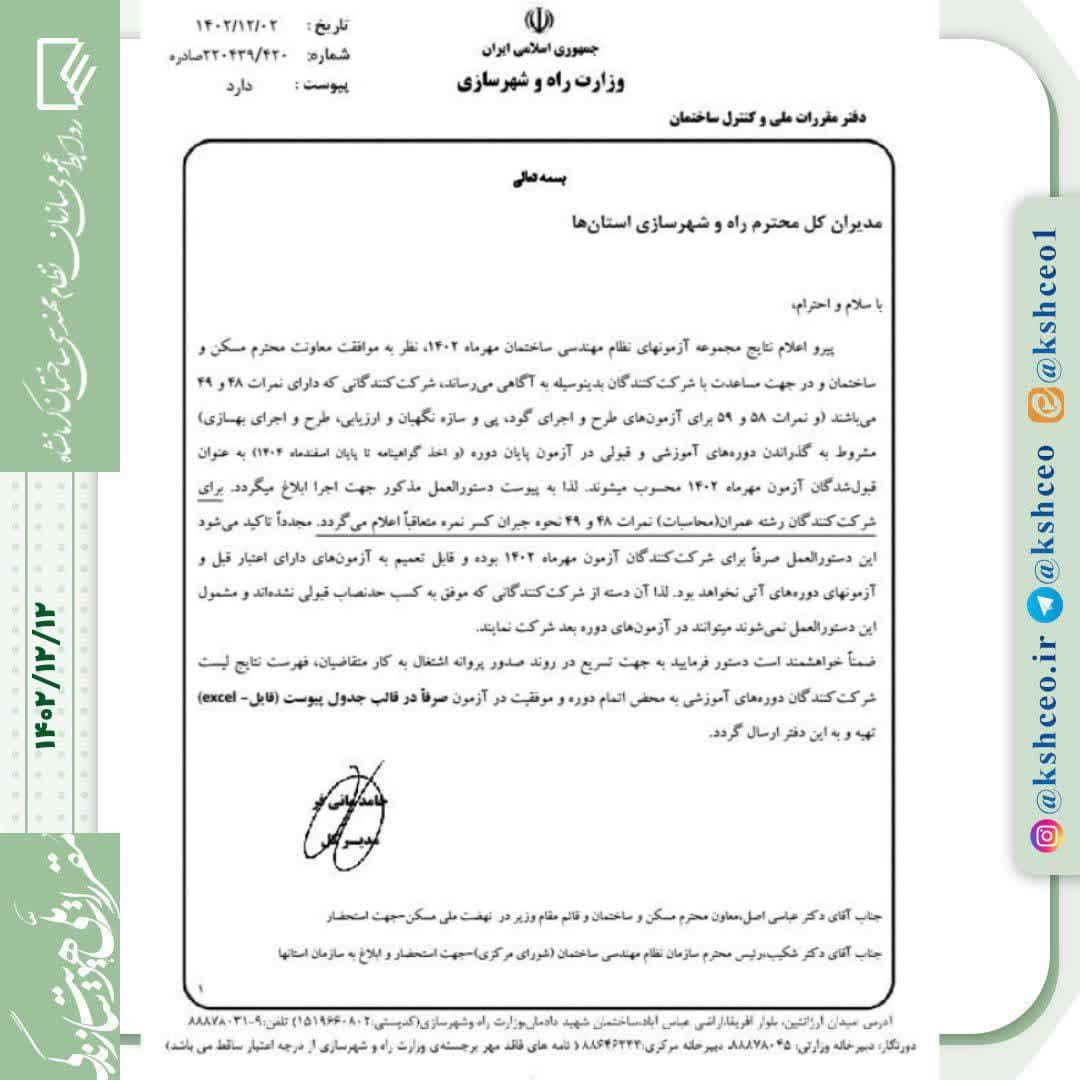 جمهوری اسلامی ایران
وزارت راه و شهرسازی
تاریخ: ۱۴۰۲/۱۲/۰۲
شماره: ۲۲۰۴۳۹/۴۲۰صادره
پیوست: دارد
دفتر مقررات ملی و کنترل ساختمان
بسمه تعالی
مدیران کل محترم راه و شهرسازی استان‌ها
با سلام و احترام،
پیرو اعلام نتایج مجموعه آزمونهای نظام مهندسی ساختمان مهرماه ۱۴۰۲، نظر به موافقت معاونت محترم مسکن و
ساختمان و در جهت مساعدت با شرکت‌کنندگان بدینوسیله به آگاهی می‌رساند، شرکت‌کنندگانی که دارای نمرات ۴۸ و ۴۹
می‌باشند (و نمرات ۵۸ و ۵۹ برای آزمون‌های طرح و اجرای گود، پی و سازه نگهبان و ارزیابی، طرح و اجرای بهسازی)
مشروط به گذراندن دوره‌های آموزشی و قبولی در آزمون پایان دوره (و اخذ گواهینامه تا پایان اسفندماه ۱۴۰۴) به عنوان
قبول‌شدگان آزمون مهرماه ۱۴۰۲ محسوب میشوند. لذا به پیوست دستورالعمل مذکور جهت اجرا ابلاغ میگردد. برای
شرکت‌کنندگان رشته عمران(محاسبات) نمرات ۴۸ و ۴۹ نحوه جبران کسر نمره متعاقباً اعلام می‌گردد. مجدداً تاکید می‌شود
این دستورالعمل صرفاً برای شرکت‌کنندگان آزمون مهرماه ۱۴۰۲ بوده و قابل تعمیم به آزمون‌های دارای اعتبار قبل و
آزمونهای دوره‌های آتی نخواهد بود. لذا آن دسته از شرکت‌کنندگانی که موفق به کسب حدنصاب قبولی نشده‌اند و مشمول
این دستورالعمل نمی‌شوند میتوانند در آزمون‌های دوره بعد شرکت نمایند.
ضمناً خواهشمند است دستور فرمایید به جهت تسریع در روند صدور پروانه اشتغال به کار متقاضیان، فهرست نتایج لیست
شرکت‌کنندگان دوره‌های آموزشی به محض اتمام دوره و موفقیت در آزمون صرفاً در قالب جدول پیوست (فایل- excel)
تهیه و به این دفتر ارسال گردد.
حامد مانی فر
مدیر کل
جناب آقای دکتر عباسی اصل،معاون محترم مسکن و ساختمان و قائم مقام وزیر در نهضت ملی مسکن-جهت استحضار
جناب آقای دکتر شکیب،رئیس محترم سازمان نظام مهندسی ساختمان (شورای مرکزی)-جهت استحضار و ابلاغ به سازمان استانها
۱
آدرس :میدان آرژانتین، بلوار آفریقا،اراضی عباس آباد،ساختمان شهید دادمان،وزارت راه وشهرسازی(کدپستی:۱۵۱۹۶۶۰۸۰۲) تلفن:۹-۸۸۸۷۸۰۳۱
دورنگار: دبیرخانه وزارتی: ۸۸۸۷۸۰۴۵، دبیرخانه مرکزی:۸۸۶۴۶۲۳۳ ( نامه های فاقد مهر برجسته‌ی وزارت راه و شهرسازی از درجه اعتبار ساقط می باشد)
روابط عمومی سازمان نظام مهندسی ساختمان کرمانشاه
۱۴۰۲/۱۲/۱۲
@kshceo.ir
@kshceo
@kshceo1